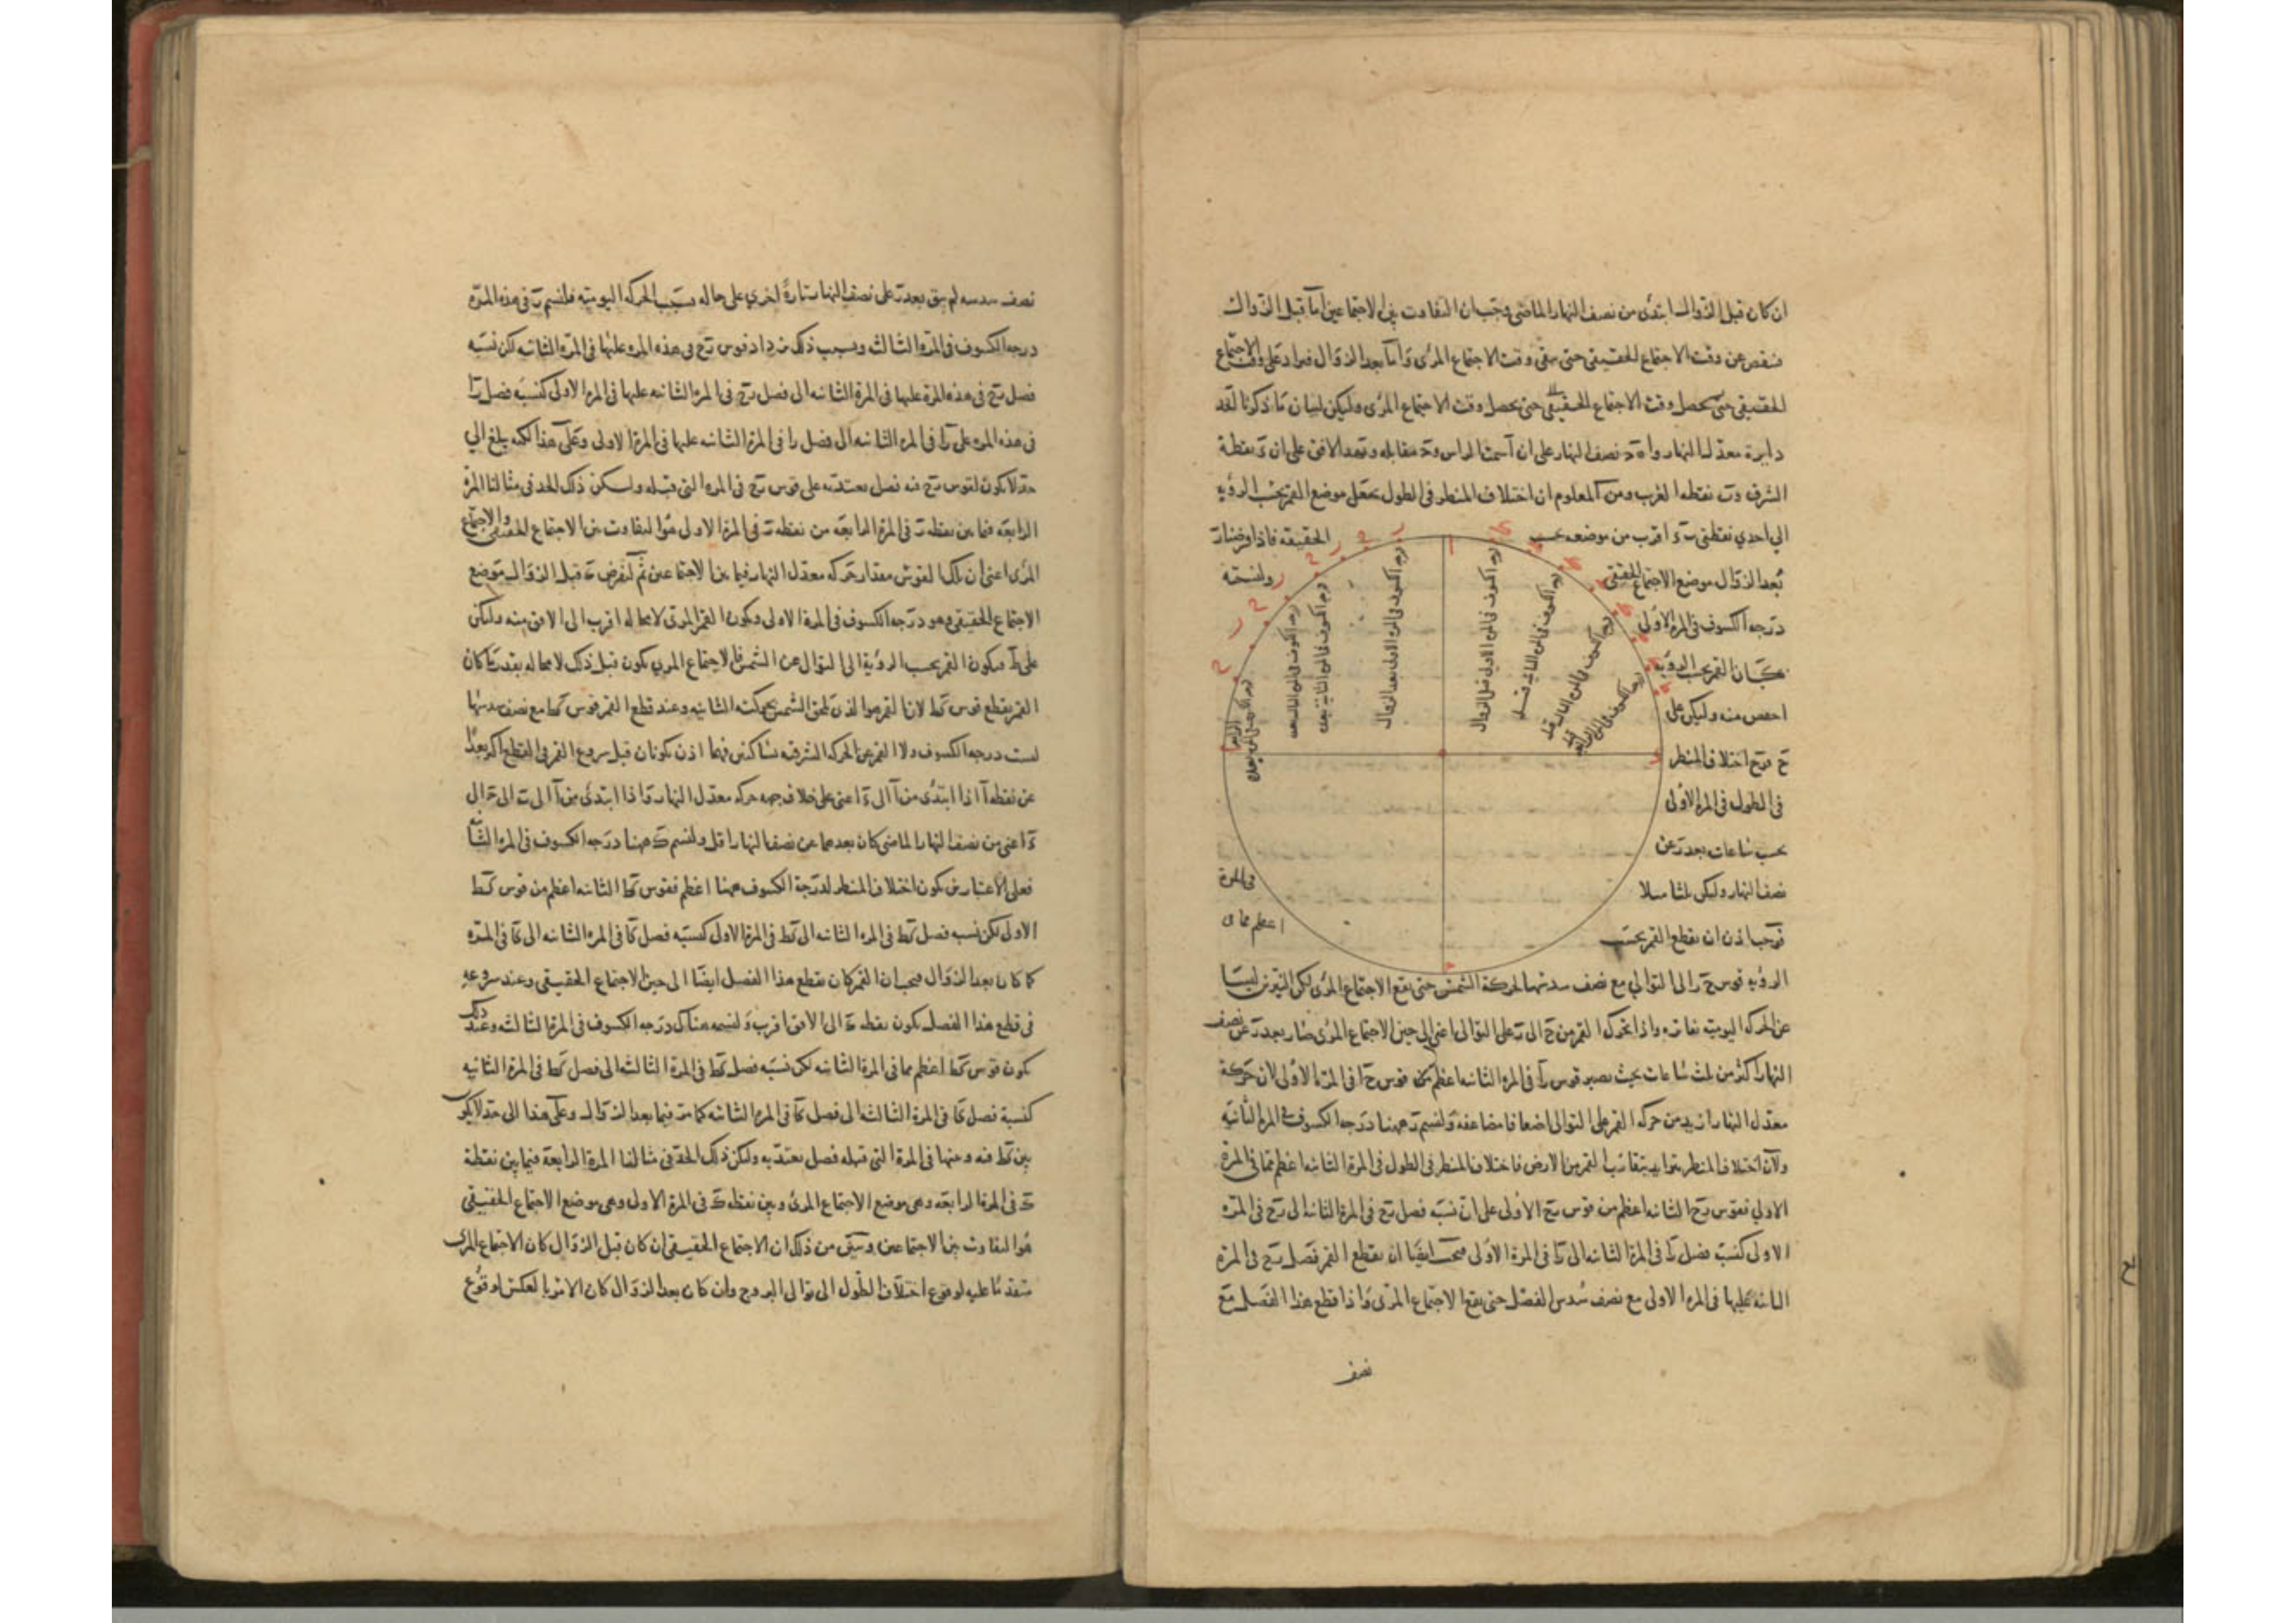 ان كان قبل الزوال ابتدئ من نصف النهار الماضى وجب ان التفاوت بين الاجتماعين اما قبل الزوال
فنقص عن وقت الاجتماع الحقيقى حتى يبقى وقت الاجتماع المرئى واما بعد الزوال فيزاد على وقت الاجتماع
الحقيقى حتى يحصل وقت الاجتماع الحقيقى حتى يحصل وقت الاجتماع المرئى وليكن لبيان ما ذكرنا
دايرة معدل النهار نصف النهار على ان آ سمت الراس و مقابله الافق على ان ء نقطة
الشرق و نقطة الغرب ومن المعلوم ان اختلاف المنظر فى الطول يجعل موضع القمر بحسب الرؤية
الى احدى نقطتى اقرب من موضعه بحسب الحقيقة فاذا فرضنا
بعد الزوال موضع الاجتماع الحقيقى
درجة الكسوف فى المرة الاولى
كان القمر بحسب الرؤية
اخفض منه وليكن على
ح اختلاف المنظر
فى الطول فى المرة الاولى
بحسب ساعات بعد ر عن
نصف النهار وليكن ثلثا مثلا فى المرة
فوجب اذن ان يقطع القمر بحسب اعظم مما فى
درجة الكسوف فى المرة الاولى قبل الزوال
درجة الكسوف فى المرة الثانية قبل
درجة الكسوف فى المرة الثالثة قبل
درجة الكسوف فى المرة الرابعة قبل
درجة الكسوف فى المرة الاولى بعد الزوال
درجة الكسوف فى المرة الثانية بعد
درجة الكسوف فى المرة الثالثة بعد
الرؤية قوس ح ر الى التوالى مع نصف سدسها لحركة الشمس حتى يقع الاجتماع المرئى لكن النيرين ليسا
عن الحركة اليومية واذا تحرك القمر من ح الى ر على التوالى اعنى الى حين الاجتماع المرئى صار بعد ر عن نصف
النهار اكثر من ثلث ساعات بحيث يصير قوس ر آ فى المرة الثانية اعظم من قوس ح آ فى المرة الاولى لان حركة
معدل النهار ازيد من حركة القمر على التوالى اضعافا مضاعفة ولنسم ر ههنا درجة الكسوف فى المرة الثانية
ولان اختلاف المنظر يتزايد بتقارب القمر من الارض فاختلاف المنظر فى الطول فى المرة الثانية اعظم مما فى المرة
الاولى فقوس ر ح الثانية اعظم من قوس ر ح الاولى على ان نسبة فضل ر ح فى المرة الثانية الى ر ح فى المرة
الاولى كنسبة فضل ر آ فى المرة الثانية الى ر آ فى المرة الاولى فيجب ايضا ان يقطع القمر فضل ر ح فى المرة
الثانية عليها فى المرة الاولى مع نصف سدس الفضل حتى يقع الاجتماع المرئى واذا قطع هذا الفضل مع
نصف
نصف سدسه لم يبق بعد ر على نصف النهار تارة اخرى على حاله بسبب الحركة اليومية فلنسم ر فى هذه المرة
درجة الكسوف فى المرة الثالثة وبسبب ذلك يزداد قوس ر ح فى هذه المرة عليها فى المرة الثانية لكن نسبة
فضل ر ح فى هذه المرة عليها فى المرة الثانية الى فضل ر ح فى المرة الثانية عليها فى المرة الاولى كنسبة فضل ر آ
فى هذه المرة على ر آ فى المرة الثانية الى فضل ر آ فى المرة الثانية عليها فى المرة الاولى وعلى هذا الى
حد لا يكون لقوس ر ح فيه فضل يعتد به على قوس ر ح فى المرة التى قبله وليكن ذلك الحد فى مثالنا المرة
الرابعة فما بين نقطة ر فى المرة الرابعة من نقطة ر فى المرة الاولى هو التفاوت بين الاجتماع الحقيقى والاجتماع
المرئى اعنى ان تلك القوس مقدار حركة معدل النهار فيما بين الاجتماعين ثم لنفرض قبل الزوال موضع
الاجتماع الحقيقى وهو درجة الكسوف فى المرة الاولى ويكون القمر المرئى لا محالة اقرب الى الافق منه وليكن
على ط فيكون القمر بحسب الرؤية الى التوالى عن الشمس فالاجتماع المرئى يكون قبل ذلك لا محالة بقدر ما كان
القمر يقطع قوس ك ط لان القمر هو الذى يلحق الشمس بحركته الثانية وعند قطع القمر قوس ك ط مع نصف سدسها
ليست درجة الكسوف ولا القمر عن الحركة الشرقية بساكنين فهما اذن يكونان قبل شروع القمر فى القطع اكثر بعدا
عن نقطة آ اذا ابتدئ من آ الى ء اعنى على خلاف جهة حركة معدل النهار واذا ابتدئ من آ الى ب الى ج الى
ء اعنى من نصف النهار الماضى كان بعدهما عن نصف النهار اقل ولنسم ك ههنا درجة الكسوف فى المرة الثانية
فعلى الاعتبارين يكون اختلاف المنظر لدرجة الكسوف ههنا اعظم فقوس ك ط الثانية اعظم من قوس ك ط
الاولى لكن نسبة فضل ك ط فى المرة الثانية الى ك ط فى المرة الاولى كنسبة فضل ك آ فى المرة الثانية الى ك آ فى المرة
كما كان بعد الزوال فيجب ان القمر كان يقطع هذا الفضل ايضا الى حين الاجتماع الحقيقى وعند شروعه
فى قطع هذا الفضل يكون نقطة الى الافق اقرب ولنسمه هناك درجة الكسوف فى المرة الثالثة وعند ذلك
يكون قوس ك ط اعظم مما فى المرة الثانية لكن نسبة فضل ك ط فى المرة الثالثة الى فضل ك ط فى المرة الثانية
كنسبة فضل ك آ فى المرة الثالثة الى فضل ك آ فى المرة الثانية كما مر فيما بعد الزوال وعلى هذا الى حد لا يكون
بين ك ط فيه وبينها فى المرة التى قبله فضل يعتد به وليكن ذلك الحد فى مثالنا المرة الرابعة فيما بين نقطة
ك فى المرة الرابعة وهى موضع الاجتماع المرئى وبين نقطة ك فى المرة الاولى وهى موضع الاجتماع الحقيقى
هو التفاوت بين الاجتماعين وتبين من ذلك ان الاجتماع الحقيقى ان كان قبل الزوال كان الاجتماع المرئى
متقدما عليه لوقوع اختلاف الطول الى توالى البروج وان كان بعد الزوال كان الامر بالعكس لوقوع